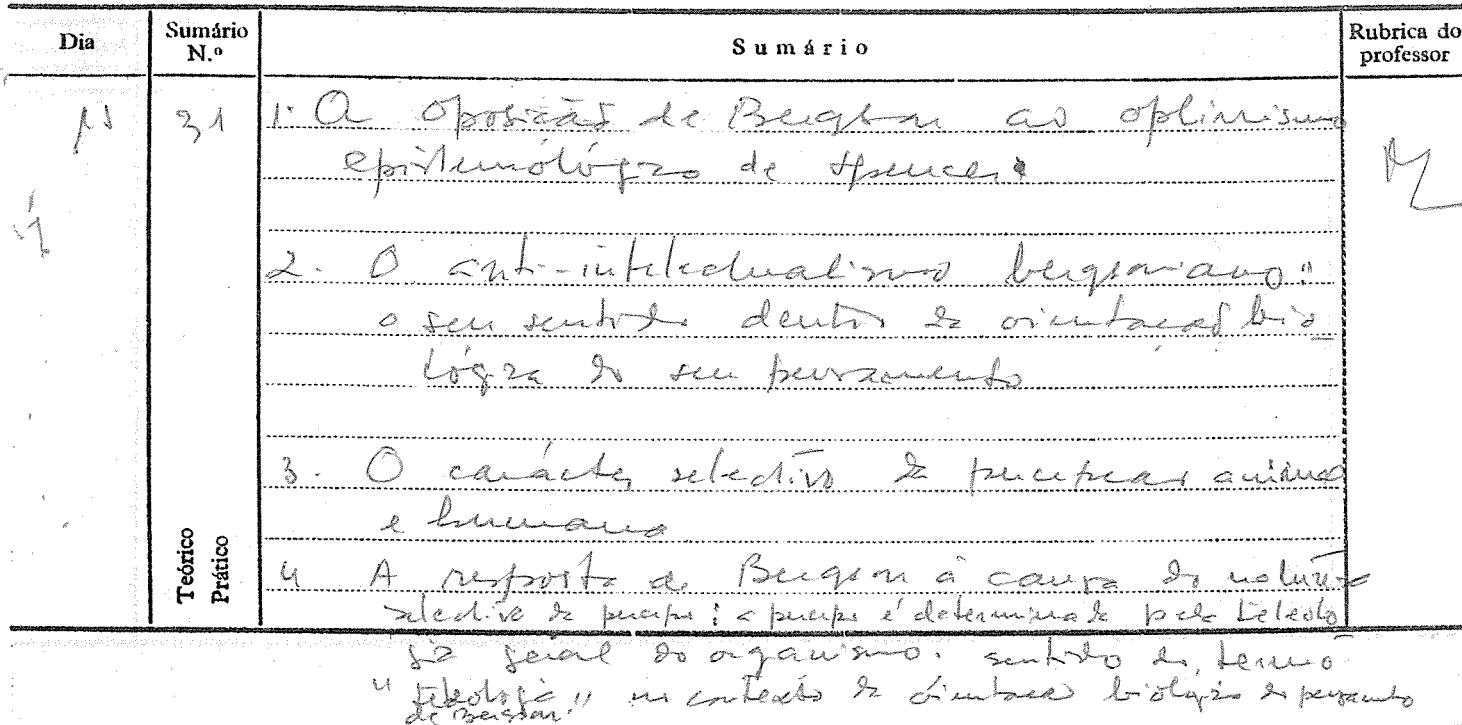 Dia Sumário N.º Sumário Rubrica do professor
31 1. A oposição de Bergson ao optimismo
epistemológico de Spencer.
2. O anti-intelectualismo bergsoniano:
o seu sentido dentro da orientação bio
lógica do seu pensamento
3. O carácter selectivo da percepção animal
e humana
Teórico
Prático
4 A resposta de Bergson à causa da natureza
selectiva da percepç: a percepç é determinada pela teleolo
gia geral do organismo. sentido do termo
"teleologia" no contexto da orientação biológica do pensamento
de Bergson.